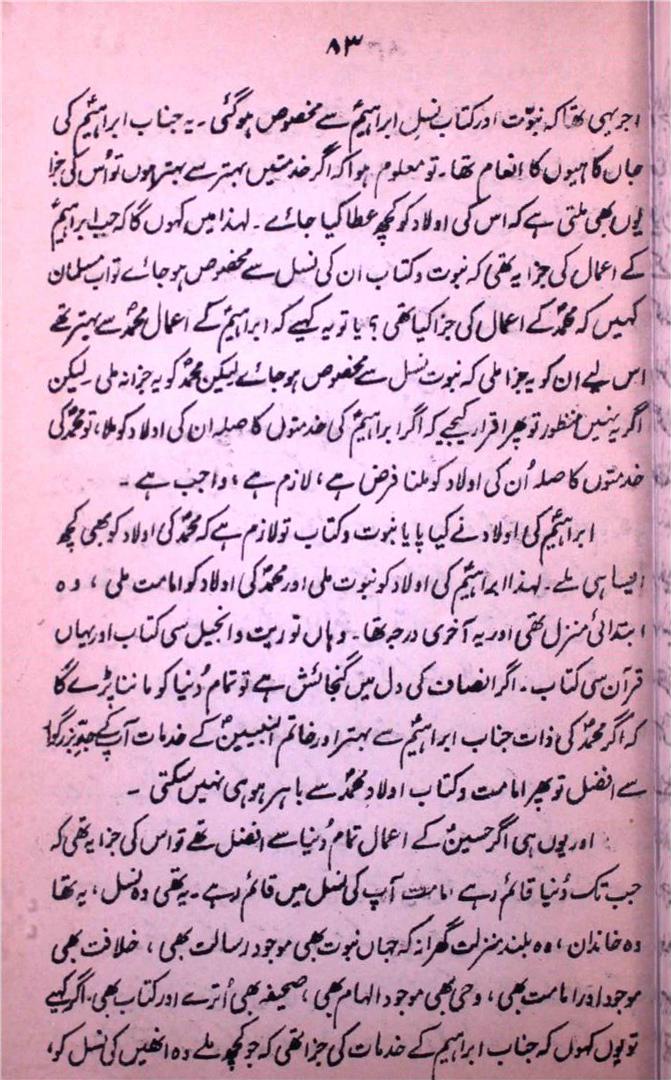 ۸۳
اجر یہی تھا کہ نبوّت اور کتاب نسلِ ابراہیمؑ سے مخصوص ہو گئی۔ یہ جناب ابراہیمؑ کی
جاں کاہیوں کا انعام تھا۔ تو معلوم ہوا کہ اگر خدمتیں بہتر سے بہتر ہوں تو اُس کی جزا
یوں بھی ملتی ہے کہ اس کی اولاد کو کچھ عطا کیا جائے۔ لہٰذا میں کہوں گا کہ جب ابراہیمؑ
کے اعمال کی جزا یہ تھی کہ نبوت و کتاب ان کی نسل سے مخصوص ہو جائے تو اب مسلمان
کہیں کہ محمدؐ کے اعمال کی جزا کیا تھی؟ یا تو یہ کہیے کہ ابراہیمؑ کے اعمال محمدؐ سے بہتر تھے
اس لیے ان کو یہ جزا ملی کہ نبوت نسل سے مخصوص ہو جائے لیکن محمدؐ کو یہ جزا نہ ملی۔ لیکن
اگر یہ نہیں منظور تو پھر اقرار کیجیے کہ اگر ابراہیمؑ کی خدمتوں کا صلہ ان کی اولاد کو ملا، تو محمدؐ کی
خدمتوں کا صلہ اُن کی اولاد کو ملنا فرض ہے، لازم ہے، واجب ہے۔
ابراہیمؑ کی اولاد نے کیا پایا نبوت و کتاب تو لازم ہے کہ محمدؐ کی اولاد کو بھی کچھ
ایسا ہی ملے۔ لہذا ابراہیمؑ کی اولاد کو نبوت ملی اور محمدؐ کی اولاد کو امامت ملی، وہ
ابتدائی منزل تھی اور یہ آخری درجہ تھا۔ وہاں توریت و انجیل سی کتاب اور یہاں
قرآن سی کتاب۔ اگر انصاف کی دل میں گنجائش ہے تو تمام دُنیا کو ماننا پڑے گا
کہ اگر محمدؐ کی ذات جناب ابراہیمؑ سے بہتر اور خاتم النبیینؐ کے خدمات آپ کے جدِّ بزرگوار
سے افضل تو پھر امامت و کتاب اولادِ محمدؐ سے باہر ہو ہی نہیں سکتی۔
اور یوں ہی اگر حسینؑ کے اعمال تمام دُنیا سے افضل تھے تو اس کی جزا یہ تھی کہ
جب تک دُنیا قائم رہے امامت آپ کی نسل میں قائم رہے۔ یہ تھی وہ نسل، یہ تھا
وہ خاندان، وہ بلند منزلت گھرانہ کہ جہاں نبوت بھی موجود رسالت بھی، خلافت بھی
موجود اور امامت بھی، وحی بھی موجود الہام بھی، صحیفہ بھی اُترے اور کتاب بھی۔ اگر کہیے
تو یوں کہوں کہ جناب ابراہیمؑ کے خدمات کی جزا تھی کہ جو کچھ ملے وہ انھیں کی نسل کو،